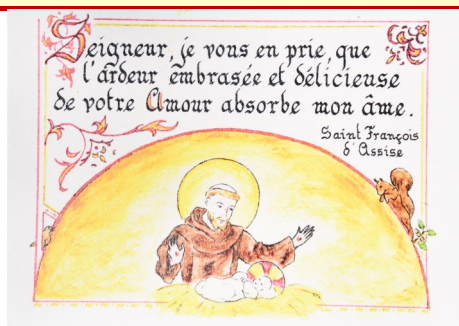 Seigneur, je vous en prie, que
l'ardeur embrasée et délicieuse
de votre Amour absorbe mon âme.
Saint François
d'Assise